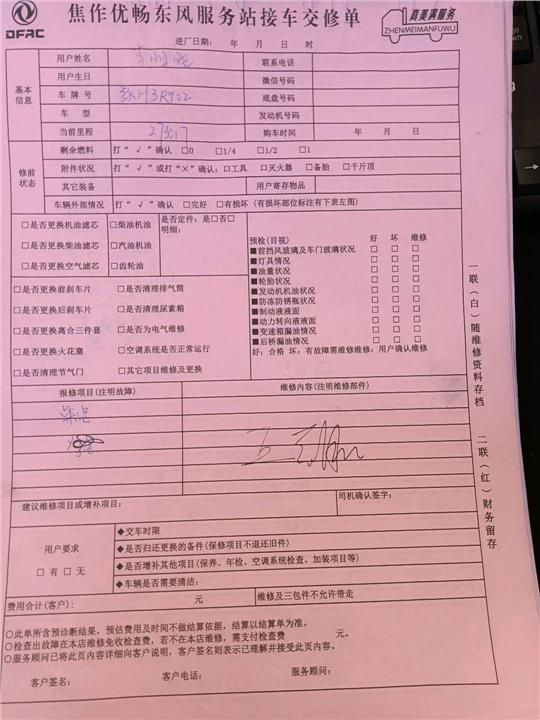 焦作优畅东风服务站接车交修单
DFAC
真美满服务
ZHENMEIMANFUWU
进厂日期: 年 月 日 时
基本信息
用户姓名 联系电话
用户生日 微信号码
车牌号 底盘号码
车型 发动机号码
当前里程 27307 购车时间 年 月 日
修前状态
剩余燃料 打“√”确认 □0 □1/4 □1/2 □1
附件状况 打“√”或打“×”确认:□工具 □灭火器 □备胎 □千斤顶
其它装备 用户寄存物品
车辆外部情况 打“√”确认 □完好 □有损坏(有损坏部位标注有下表左图)
□是否更换机油滤芯 □柴油机油
□是否更换柴油滤芯 □汽油机油
□是否更换空气滤芯 □齿轮油
是否定件:是□否□
明细:
□是否更换前刹车片 □是否清理排气筒
□是否更换后刹车片 □是否清理尿素箱
□是否更换离合三件套 □是否为电气维修
□是否更换火花塞 □空调系统是否正常运行
□是否清理节气门 □其它项目维修及更换
预检(目视) 好 坏 维修
■前挡风玻璃及车门玻璃状况 □ □ □
■灯具情况 □ □ □
■油量状况 □ □ □
■轮胎状况 □ □ □
■发动机机油状况 □ □ □
■防冻防锈瓶状况 □ □ □
■制动液液面 □ □ □
■动力转向液液面 □ □ □
■变速箱漏油情况 □ □ □
■后桥漏油情况 □ □ □
好:合格 坏:有故障需维修维修:用户确认维修
报修项目(注明故障) 维修内容(注明维修部件)
建议维修项目或增补项目: 司机确认签字:
用户要求
□有 □无
◆交车时限
◆是否归还更换的备件(保修项目不退还旧件)
◆是否增补其他项目(保养、年检、空调系统检查、加装项目等)
◆车辆是否需要清洁:
费用合计(客户): 元 维修及三包件不允许带走
○此单所含预诊断结果,预估费用及时间不做结算依据,结算以结算单为准。
○检查出故障在本店维修免收检查费,若不在本店维修,需支付检查费 元。
○服务顾问已将此页内容详细向客户说明,客户签名则表示已理解并接受此页内容。
客户签名: 客户电话: 服务顾问:
一联(白)随维修资料存档
二联(红)财务留存